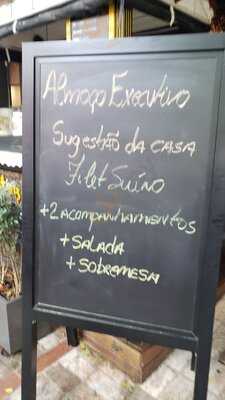 Almoço Executivo
Sugestão da casa
Filet Suíno
+2 acompanhamentos
+ Salada
+ Sobremesa